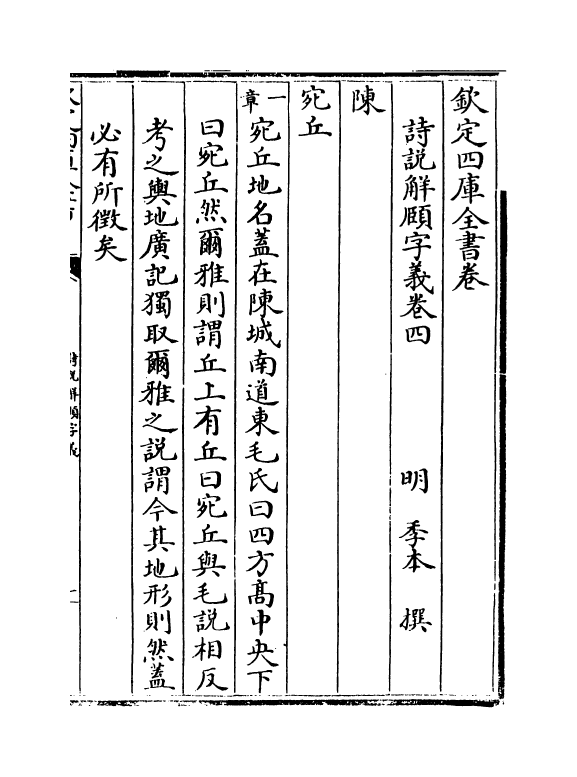 欽定四庫全書卷
詩説解頤字義卷四　明　季本　撰
陳
宛丘
一章宛丘地名蓋在陳城南道東毛氏曰四方髙中央下
曰宛丘然爾雅則謂丘上有丘曰宛丘與毛説相反
考之輿地廣記獨取爾雅之説謂今其地形則然蓋
必有所徴矣
詩説解頤字義